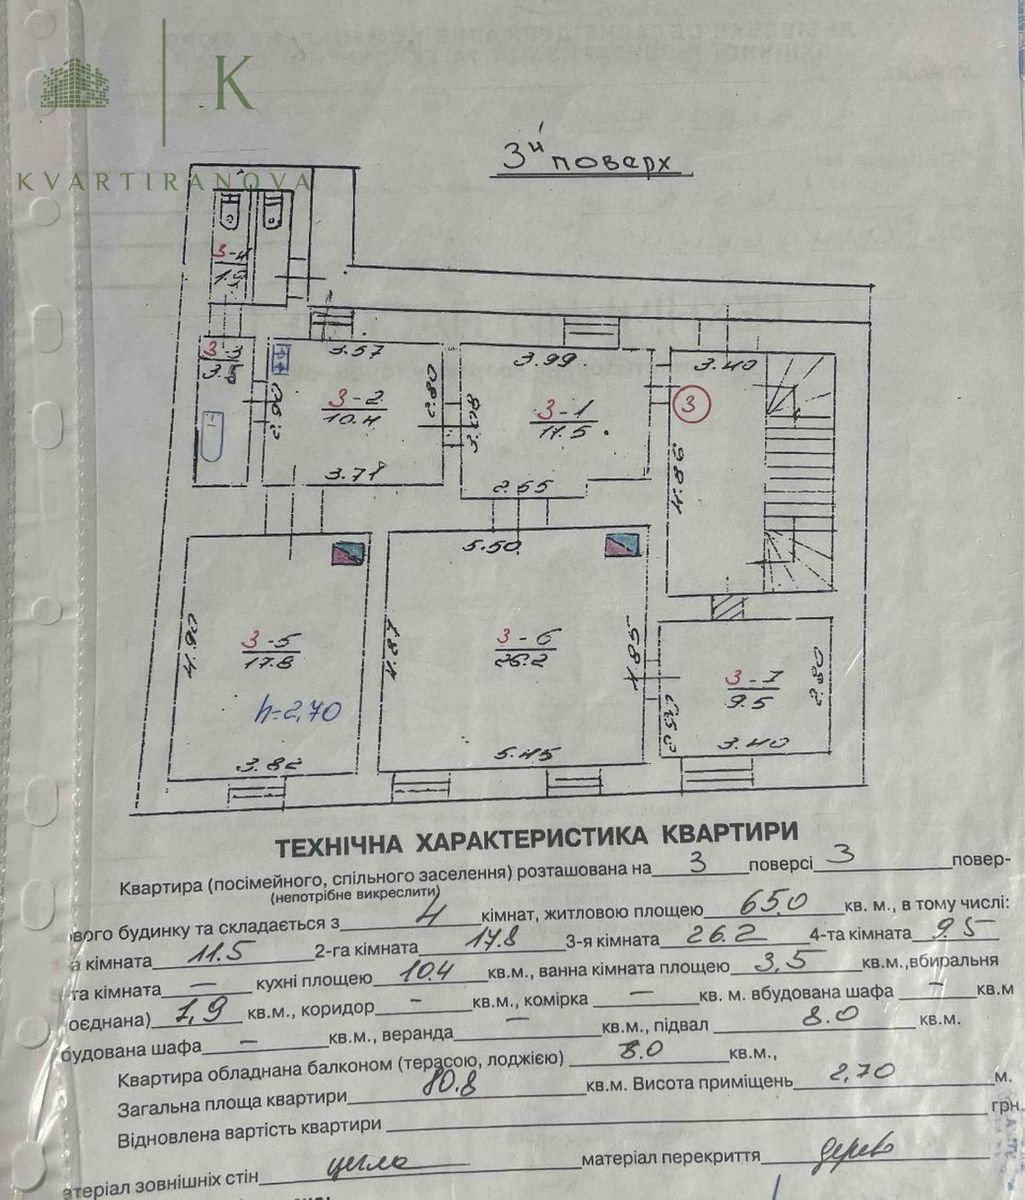 K
KVARTIRANOVA
3й поверх
3-4
1.9
3-3
3.5
3.57
2.80
2.90
3-2
10.4
3.71
3.99
3.08
3-1
11.5
2.55
3.40
3
4.86
5.50
4.90
3-5
17.8
h=2,70
3.82
4.87
3-6
26.2
4.85
5.45
3-7
9.5
2.80
3.40
ТЕХНІЧНА ХАРАКТЕРИСТИКА КВАРТИРИ
Квартира (посімейного, спільного заселення) розташована на 3 поверсі 3 повер-
(непотрібне викреслити)
ового будинку та складається з 4 кімнат, житловою площею 65,0 кв. м., в тому числі:
а кімната 11.5 2-га кімната 17.8 3-я кімната 26.2 4-та кімната 9.5
та кімната — кухні площею 10.4 кв.м., ванна кімната площею 3,5 кв.м.,вбиральня
оєднана) 1,9 кв.м., коридор - кв.м., комірка — кв. м. вбудована шафа - кв.м
будована шафа — кв.м., веранда — кв.м., підвал 8.0 кв.м.
Квартира обладнана балконом (терасою, лоджією) 8.0 кв.м.,
Загальна площа квартири 80.8 кв.м. Висота приміщень 2,70 м.
Відновлена вартість квартири грн.
атеріал зовнішніх стін цегла матеріал перекриття дерево